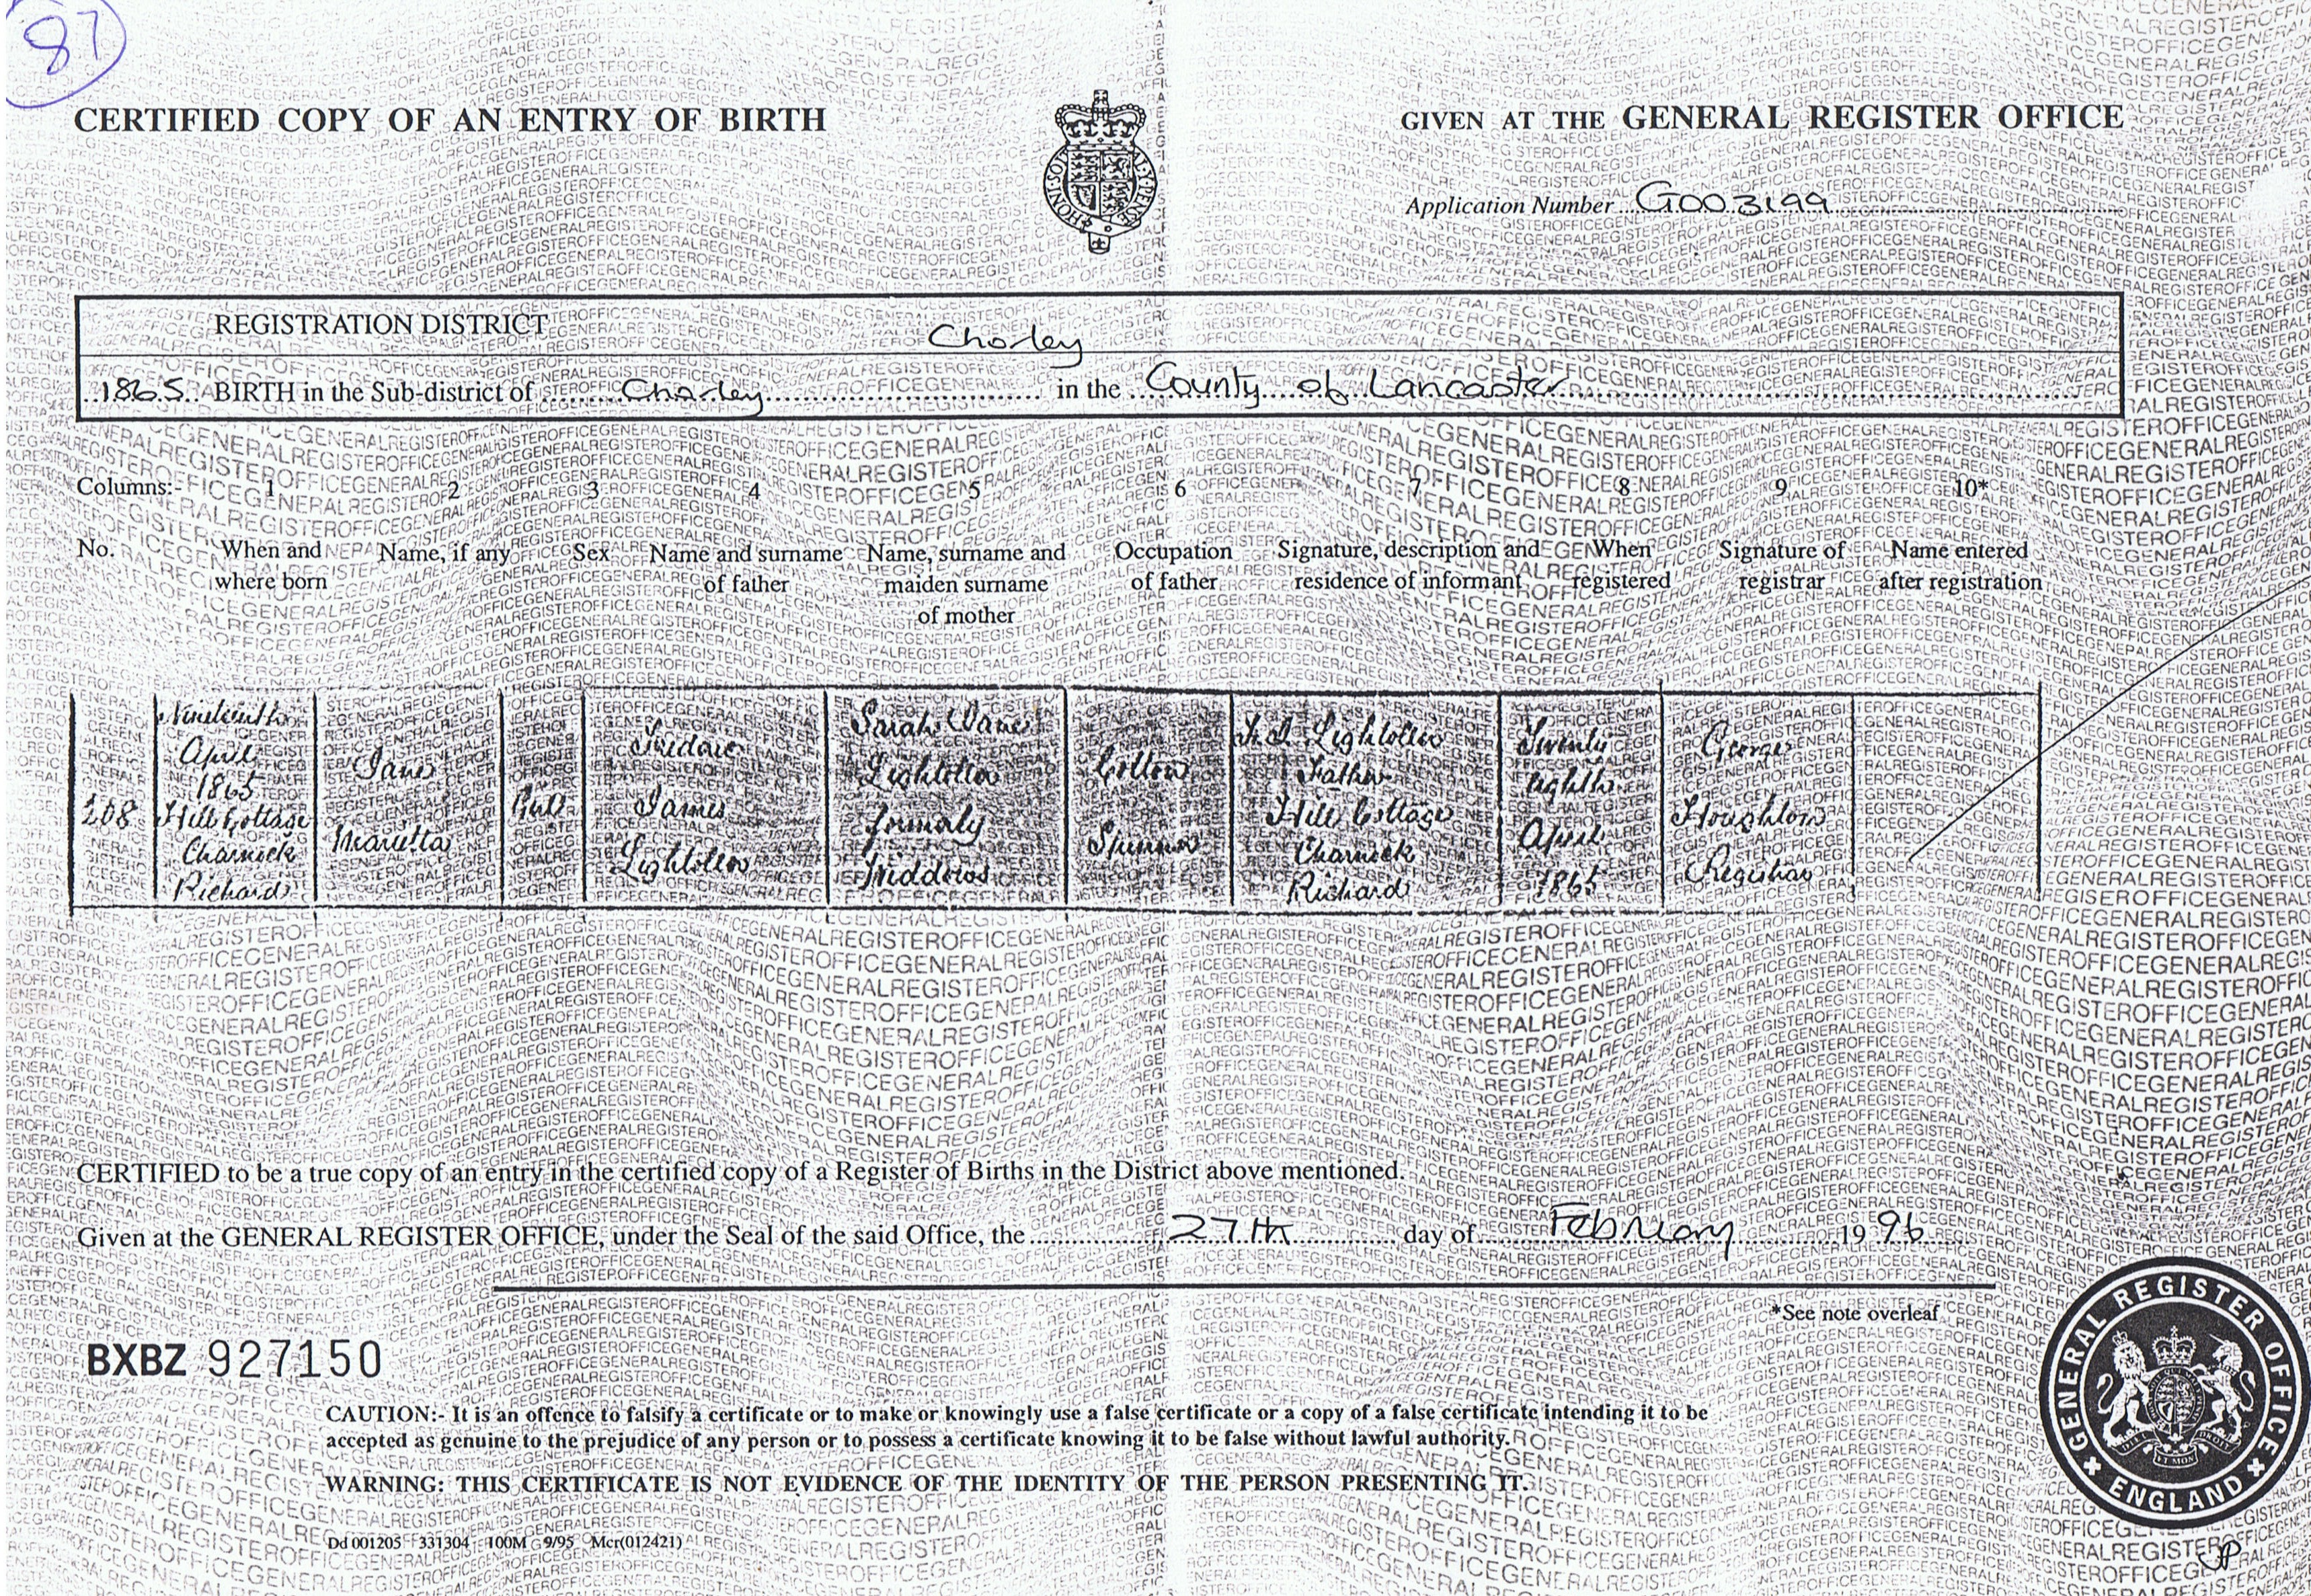 87
CERTIFIED COPY OF AN ENTRY OF BIRTH
GIVEN AT THE GENERAL REGISTER OFFICE
Application Number G003199
REGISTRATION DISTRICT Chorley
1865 BIRTH in the Sub-district of Chorley in the County of Lancaster
Columns:- 1 2 3 4 5 6 7 8 9 10*
No. When and where born Name, if any Sex Name and surname of father Name, surname and maiden surname of mother Occupation of father Signature, description and residence of informant When registered Signature of registrar Name entered after registration
208
Nineteenth
April
1865
Hill Cottage
Charnock
Richard
Jane
Marietta
Girl
James
Lightoller
Sarah Jane
Lightoller
formerly
Widdows
Cotton
Spinner
Lightoller
Father
Hill Cottage
Charnock
Richard
Twenty
eighth
April
1865
George
Houghton
Registrar
CERTIFIED to be a true copy of an entry in the certified copy of a Register of Births in the District above mentioned.
Given at the GENERAL REGISTER OFFICE, under the Seal of the said Office, the 27th day of February 1996
*See note overleaf
BXBZ 927150
CAUTION:- It is an offence to falsify a certificate or to make or knowingly use a false certificate or a copy of a false certificate intending it to be
accepted as genuine to the prejudice of any person or to possess a certificate knowing it to be false without lawful authority.
WARNING: THIS CERTIFICATE IS NOT EVIDENCE OF THE IDENTITY OF THE PERSON PRESENTING IT.
Dd 001205 331304 100M 9/95 Mcr(012421)
GENERAL REGISTER OFFICE
ENGLAND
JP